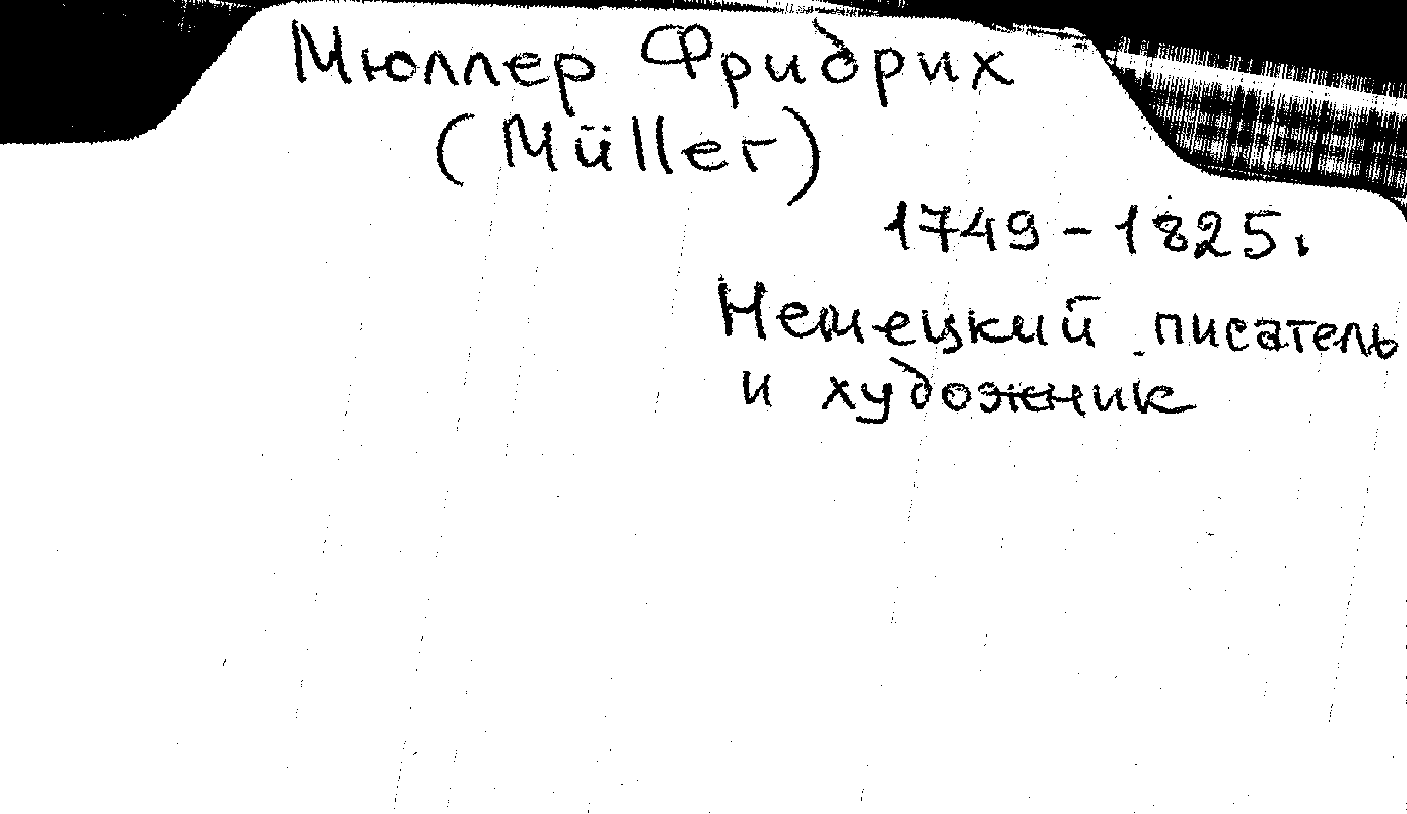 Мюллер Фридрих
(Müller)
1749-1825.
Немецкий писатель
и художник